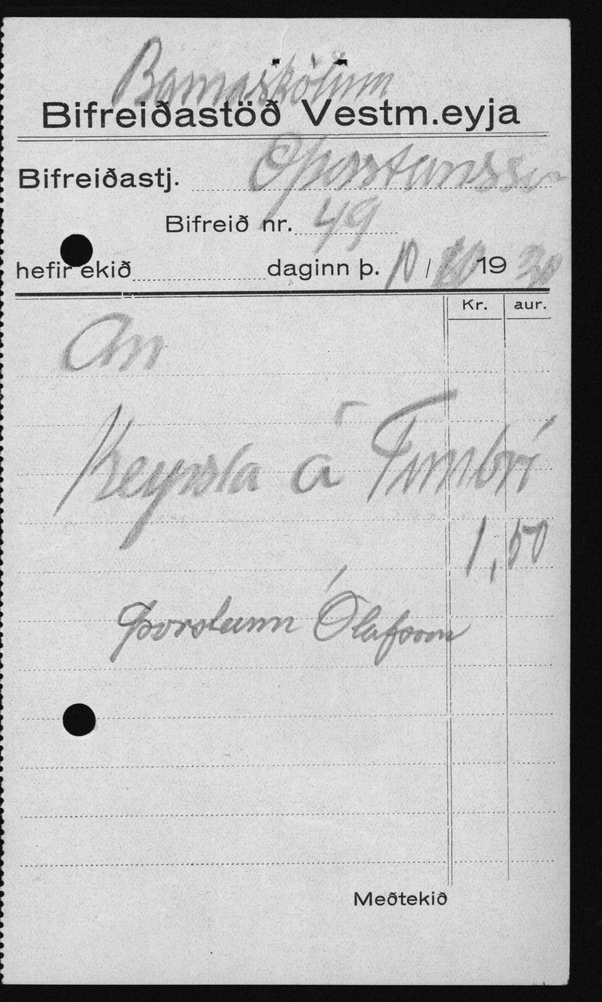 Barnaskólinn
Bifreiðastöð Vestm.eyja
Bifreiðastj. Þorsteinsson
Bifreið nr. 49
hefir ekið daginn þ. 10/10 19 30
Kr. aur.
Keyrsla á Timbri
1,50
Þorsteinn Ólafsson
Meðtekið